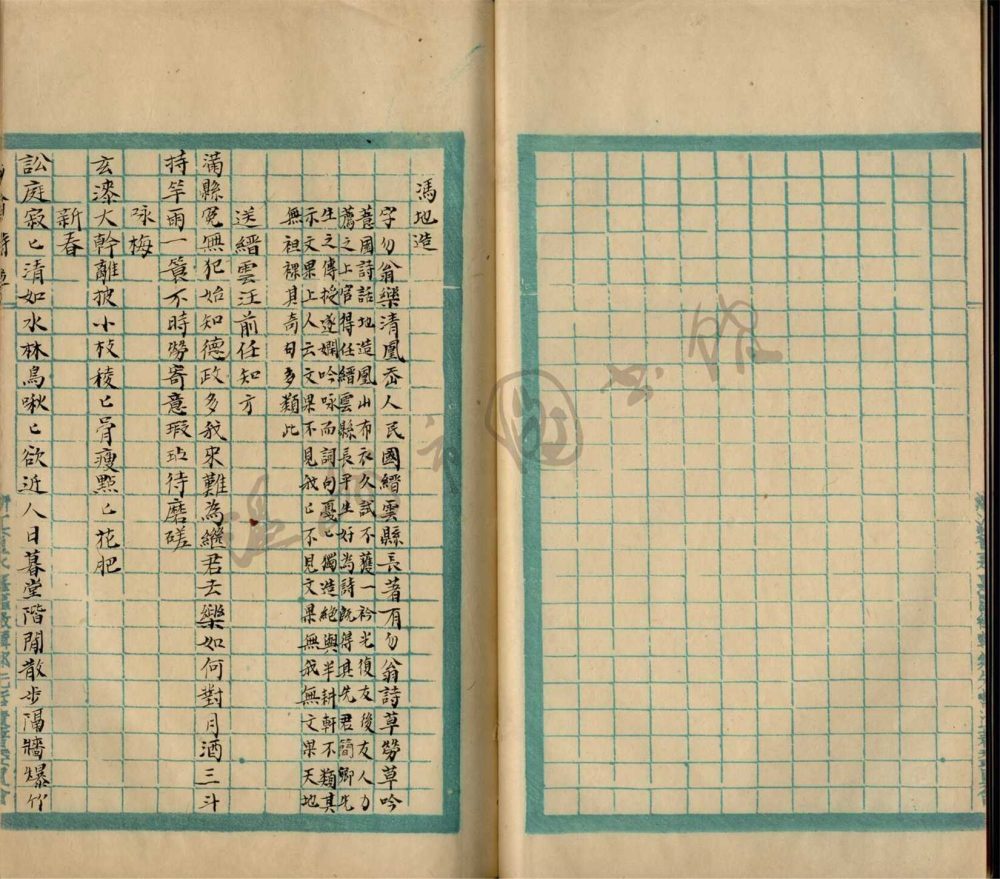 馮地造
字勿翁樂清鳳岙人民國縉雲縣長著有勿翁詩草勞草吟
薏園詩話地造鳳山布衣久試不獲一衿光復友後友人力
薦之上官得任縉雲縣長平生好為詩既得其先君簡卿先
生之傳授遂嫻吟咏而詞句憂匕獨造絕與半耕軒不類其
示文果上人云文果不見我匕不見文果無我無文果天地
無袒裸其奇句多類此
送縉雲汪前任知方
滿縣冤無犯始知德政多我來難為繼君去樂如何對月酒三斗
持竿雨一簑不時勞寄意瑕玷待磨磋
咏梅
玄漆大幹離披小枝稜匕骨瘦點匕花肥
新春
訟庭寂匕清如水林鳥啾匕欲近人日暮堂階閒散步隔牆爆竹